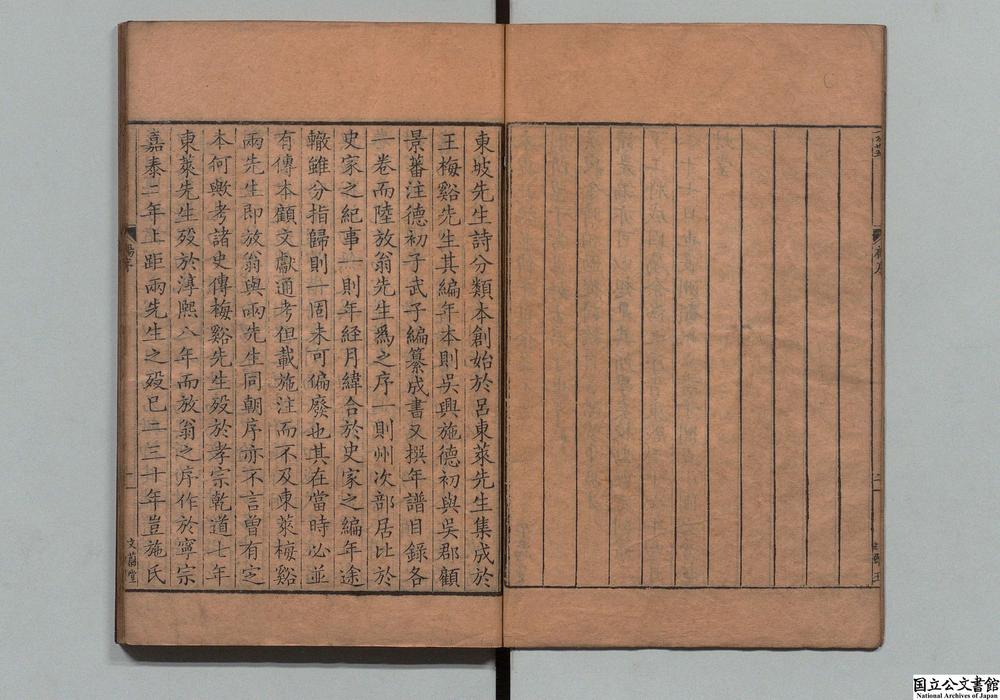 東坡先生詩分類本創始於呂東萊先生集成於
王梅谿先生其編年本則吳興施德初與吳郡顧
景蕃注德初子武子編纂成書又撰年譜目錄各
一卷而陸放翁先生爲之序一則州次部居比於
史家之紀事一則年経月緯合於史家之編年途
轍雖分指歸則一固未可偏廢也其在當時必並
有傳本顧文獻通考但載施注而不及東萊梅谿
兩先生即放翁與兩先生同朝序亦不言曽有定
本何歟考諸史傳梅谿先生歿於孝宗乾道七年
東萊先生歿於淳熙八年而放翁之序作於寧宗
嘉泰二年上距兩先生之歿已二三十年豈施氏
文蔚堂
国立公文書館
National Archives of Japan